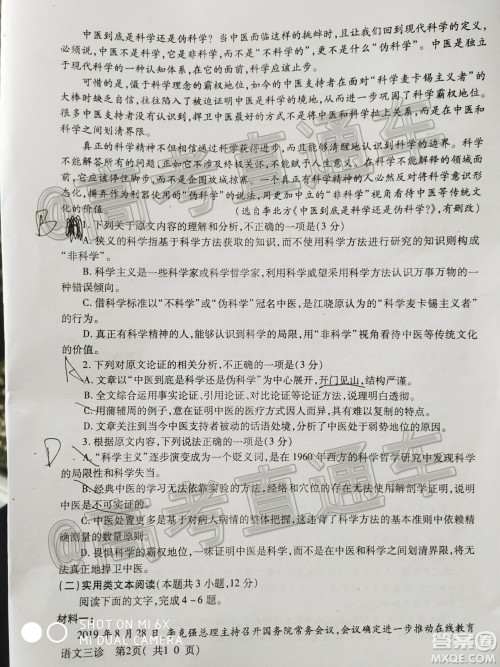 中医到底是科学还是伪科学?当中医面临这样的挑衅时,且让我们回到现代科学的定义,
必须说,中医不是科学,它是非科学,而不是“不科学的”,更不是什么“伪科学”。中医是独立
于现代科学的一种认知体系,在它的面前,科学应该止步。
可惜的是,慑于科学理念的霸权地位,如今的中医支持者在面对“科学麦卡锡主义者”的
大棒时缺乏自信,往往陷入了被迫证明中医是科学的境地,从而进一步巩固了科学霸权地位。
很多中医支持者没有认识到,捍卫中医最好的方式不是将中医和科学扯上关系,而是在中医和
科学之间划清界限。
真正的科学精神不但相信通过科学获得进步,而且能够清醒地认识到科学的边界。科学不
能解答所有的问题,正如它不涉及终极关怀,不能赋予人生意义。在科学不能解释的领域面
前,它应该停住脚步,而不是企图攻城掠寨。一个有科学精神的人必然反对将科学意识形
态化,摒弃作为利器使用的“伪科学”的说法,用更加中立的“非科学”视角看待中医等传统文
化的价值。
(选自季北方《中医到底是科学还是伪科学?》,有删改)
B
1. 下列关于原文内容的理解和分析,不正确的一项是(3 分)
A. 狭义的科学指基于科学方法获取的知识,而不使用科学方法进行研究的知识则构成
“非科学”。
B. 科学主义是一些科学家或科学哲学家,利用科学威望采用科学方法认识万事万物的一
种错误倾向。
C. 借科学标准以“不科学”或“伪科学”冠名中医,是江晓原认为的“科学麦卡锡主义者”
的行为。
D. 真正有科学精神的人,能够认识到科学的局限,用“非科学”视角看待中医等传统文化
的价值。
A
2. 下列对原文论证的相关分析,不正确的一项是(3 分)
A. 文章以“中医到底是科学还是伪科学”为中心展开,开门见山,结构严谨。
B. 全文综合运用事实论证、引用论证、对比论证等论证方法,说理明白透彻。
C. 用蒲辅周的例子,意在证明中医的医疗方式因人而异,具有难以复制的特点。
D. 文章关注到当今中医支持者被动的话语境况,分析了中医处于弱势地位的原因。
D
3. 根据原文内容,下列说法正确的一项是(3 分)
A. “科学主义”逐步演变成为一个贬义词,是在 1960 年西方的科学哲学研究中发现科学
的局限性和科学失当。
B. 经典中医的学习无法依靠实验的方法,经络和穴位的存在无法使用解剖学证明,说明
中医是不可实证的。
C. 中医处置更多是基于对病人病情的整体把握,这违背了科学方法的基本准则中依赖精
确测量的数量原则。
D. 畏惧科学的霸权地位,一味证明中医是科学,而不是在中医和科学之间划清界限,将无
法真正地捍卫中医。
(二)实用类文本阅读(本题共 3 小题,12 分)
阅读下面的文字,完成 4~6 题。
材料一
2019 年 8 月 28 日,李克强总理主持召开国务院常务会议,会议确定进一步推动在线教育
语文三诊 第2页(共10页)
@高考直通车
@高考直通车
SHOT ON MI 6X
MI DUAL CAMERA
答案圈
MXQE.COM